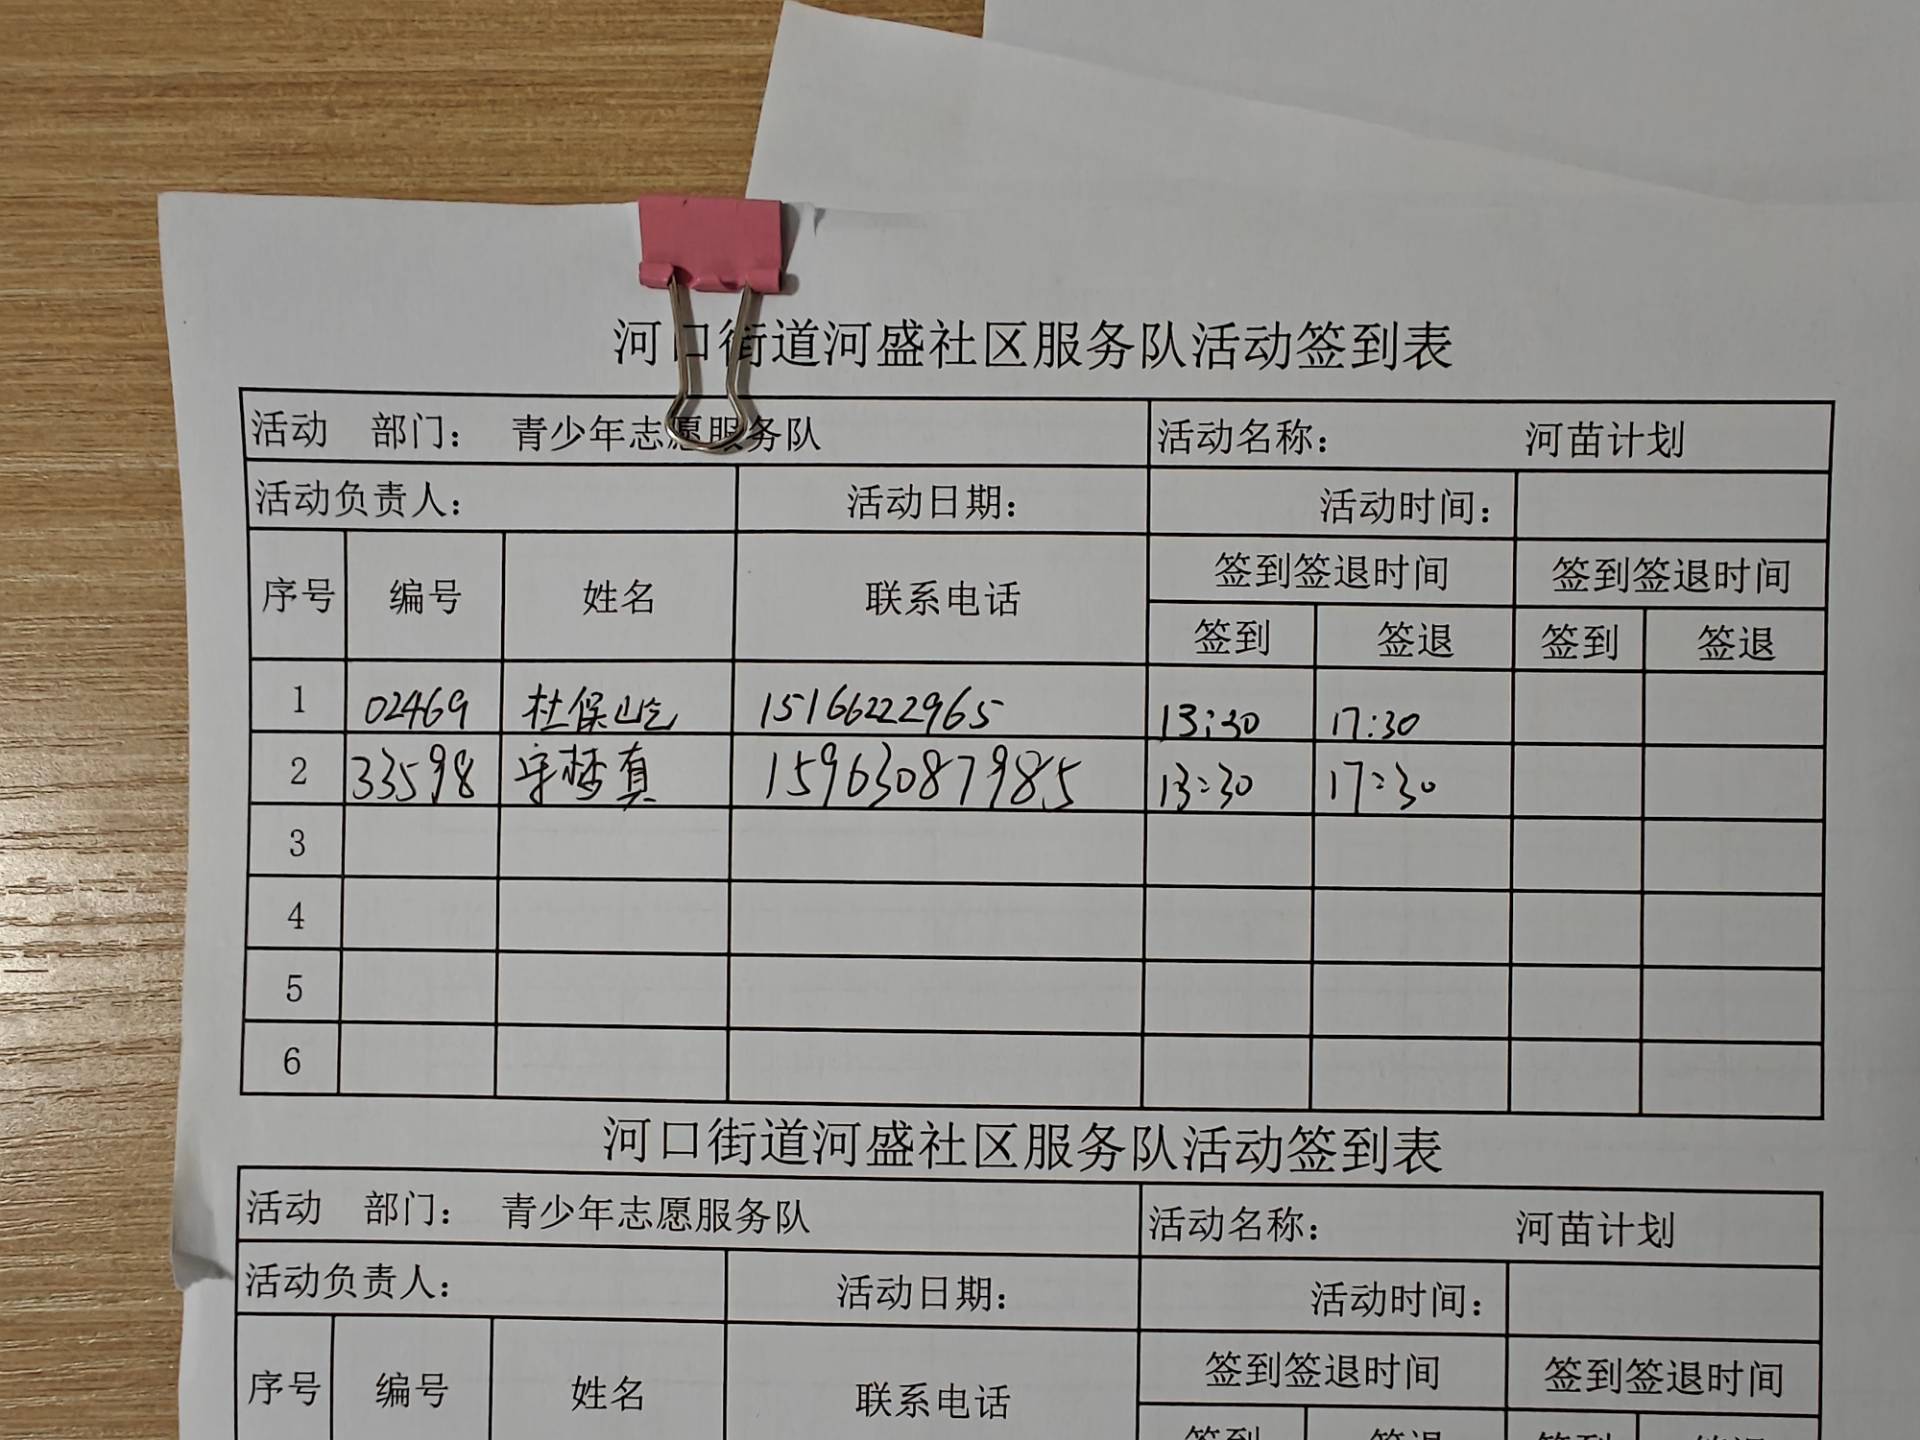 河口街道河盛社区服务队活动签到表
活动 部门： 青少年志愿服务队 活动名称： 河苗计划
活动负责人： 活动日期： 活动时间：
序号 编号 姓名 联系电话 签到签退时间 签到签退时间
签到 签退 签到 签退
1 02469 杜保屹 15166222965 13:30 17:30
2 33598 宋梦真 15963087985 13:30 17:30
3
4
5
6
河口街道河盛社区服务队活动签到表
活动 部门： 青少年志愿服务队 活动名称： 河苗计划
活动负责人： 活动日期： 活动时间：
序号 编号 姓名 联系电话 签到签退时间 签到签退时间
签到 签退 签到 签退